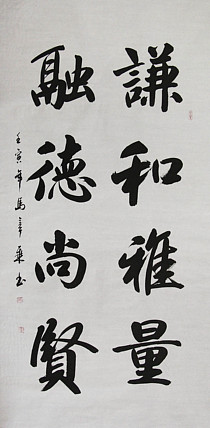 謙和雅量
融德尚賢
壬寅年馬幸燕书